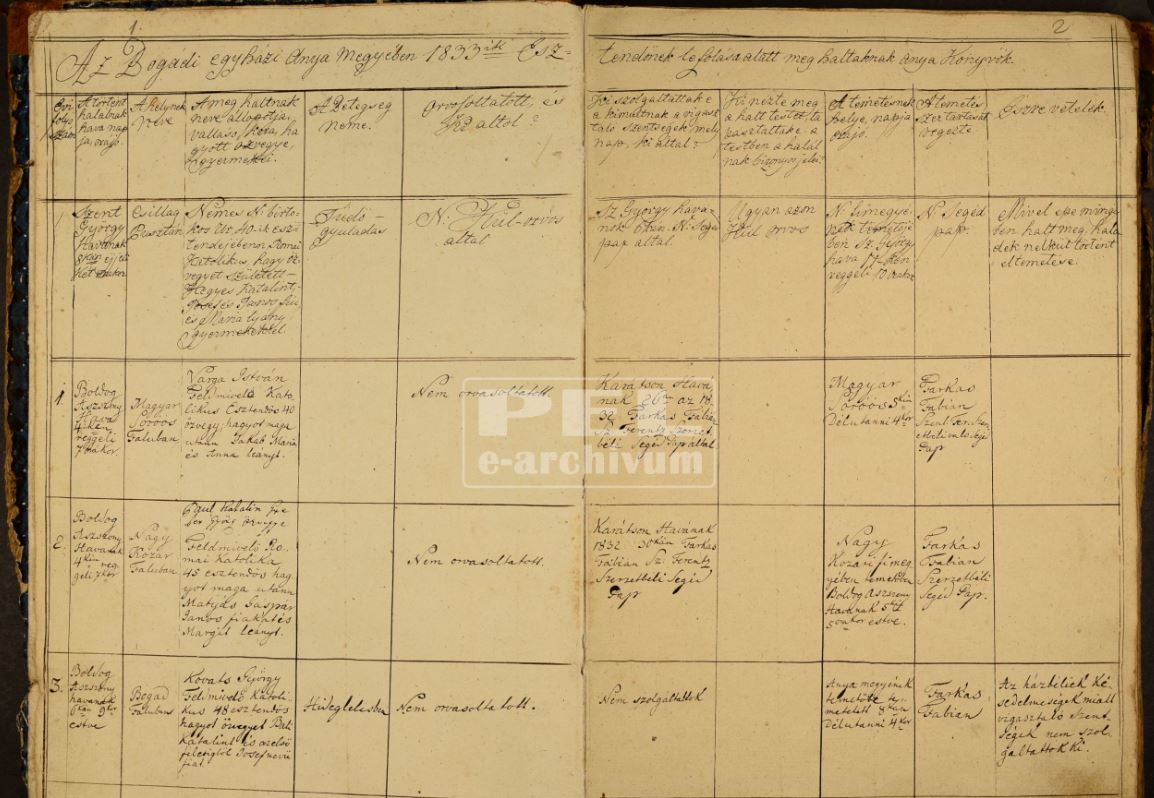 1.
2
Az Bogádi egyházi Anya Megyében 1833ik Esz=
tendőnek lefolása alatt meg haltaknak anya Könyvök.
A történt
halálnak
hava nap
ja, órája.
A helynek
neve
A meg haltnak
neve állapotja,
vallása, kora, ha
gyott özvegye,
gyermekei.
A Betegseg
neme.
Orvosoltatott, és
Ki által?
Ki szolgáltattak e
a kimultnak a vigasz
taló Szentségek, mely
nap, ki által?
Ki nézte meg
a halt testet, ta
pasztaltak e a
testben a halál
nak bizonyos jelei?
A temetésnek
helye, napja
órájá.
A temetés
Szer tartását
végezte.
Észre vételek.
Szent
György
Havának
8kán éjféli
Csillag
Pusztán
Nemes N: birto
kos Ur 40-ik esz
tendejében Romai
Katolikus, hagy öz
vegyet Született
Hegyes Katalint,
Josef és János fiu
és Maria leány
gyermekekkel.
Tüdő
gyuladás
N: Hül-orvos
által
Sz György hava
nak 6kán N: Segéd
pap által.
Ugyan azon
Hül orvos
N: Simegyé
nek temetője
ben Sz. György
hava 11-kén
reggeli 10 órakor
N: Segéd
pap.
Mivel epe mirigy
ben halt meg, hala
dék nélkül történt
eltemetése.
1.
Boldog
Aszszony
Hava
4kén
reggeli
7 órakor.
Magyar
Söröös
Faluban.
Varga István
Feldmivelő Kato
likus Esztendős 40
özvegy, hagyot maga
után Jakab Maria
és Anna leányt.
Nem orvasoltatott.
Karátson Hava
nak 26n az 18
32 Farkas Fábián
Sz. Ferentz Szerzet
béli Segéd Pap által
Magyar
Söröös 5kén
Délutanni 4kor
Farkas
Fabian
Szent Feren Szer
zetbéli Segéd
Pap
2.
Boldog
Aszszony
Havának
4kén reg
geli 7kor
Nagy
Kozár
Faluban
Paul Katalin Fie
ber Györg özvegye
Feldmivelő Ro
mai Katolika
45 esztendős hag
yot maga utánn
Matyás Gaspár
Janos fiakat és
Margit leányt.
Nem orvasoltatott.
Karátson Havának
1832 30kán Farkas
Fábián Sz. Ferentz
Szerzetbéli Segéd
Pap
Nagy
Kozári fi meg
yében temetőben
Boldog Aszszony
Havának 5kén
5 órakor estve.
Farkas
Fabian
Szerzetbéli
Segéd Pap.
3.
Boldog
Aszszony
havának
6kán 9kor
estve
Bogád
Faluban
Kováts György
Feldmivelő Katoli
kus 48 esztendős
hagyot özvegyet Bali
Katalint és az első
feleségtől Josef nevü
fiat.
Hideglelesben
Nem orvasoltatott.
Nem szolgáltattok
Anya megyének
temetőibe te
metetett 8kán
Délutanni 4kor
Farkas
Fabian
Az házbéliek Ké
sedelmességek miatt
vigasztaló Szent
Ségek nem szol
gáltattok ki.
PEL
e-archivum